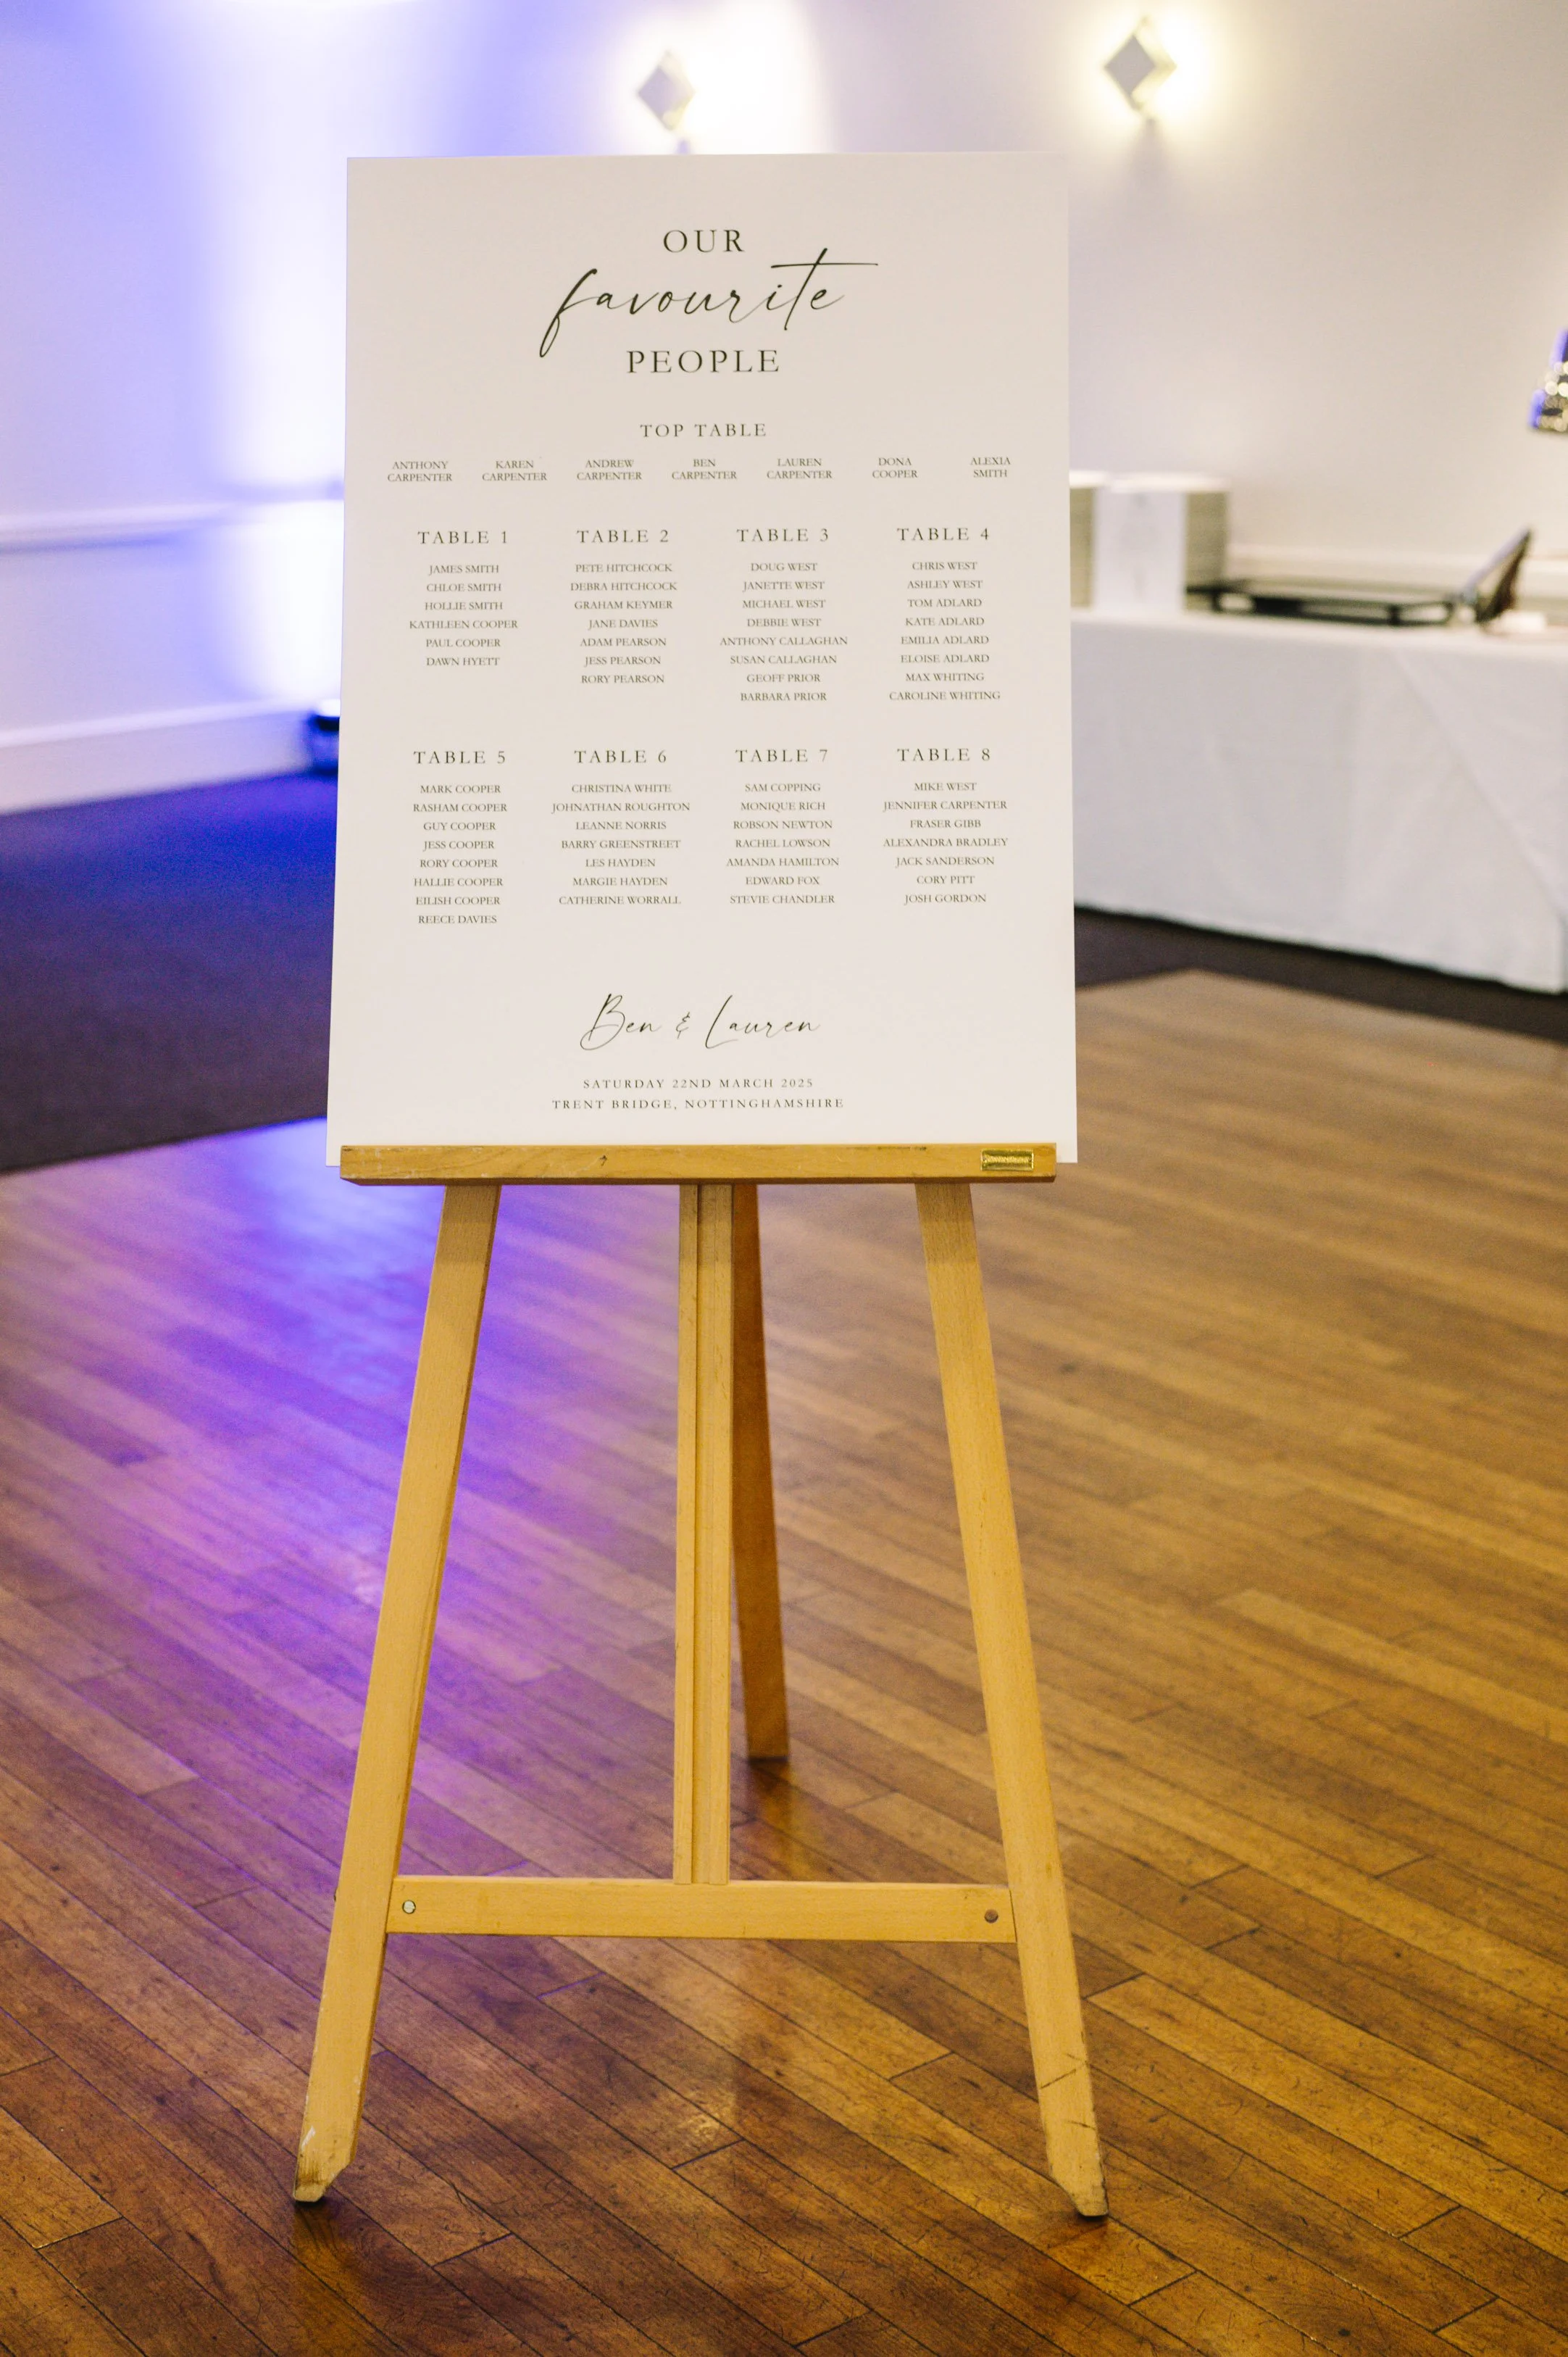 OUR
favourite
PEOPLE
TOP TABLE
ANTHONY CARPENTER
KAREN CARPENTER
ANDREW CARPENTER
BEN CARPENTER
LAUREN CARPENTER
DONA COOPER
ALEXIA SMITH
TABLE 1
JAMES SMITH
CHLOE SMITH
HOLLIE SMITH
KATHLEEN COOPER
PAUL COOPER
DAWN HYETT
TABLE 2
PETE HITCHCOCK
DEBRA HITCHCOCK
GRAHAM KEYMER
JANE DAVIES
ADAM PEARSON
JESS PEARSON
RORY PEARSON
TABLE 3
DOUG WEST
JANETTE WEST
MICHAEL WEST
DEBBIE WEST
ANTHONY CALLAGHAN
SUSAN CALLAGHAN
GEOFF PRIOR
BARBARA PRIOR
TABLE 4
CHRIS WEST
ASHLEY WEST
TOM ADLARD
KATE ADLARD
EMILIA ADLARD
ELOISE ADLARD
MAX WHITING
CAROLINE WHITING
TABLE 5
MARK COOPER
RASHAM COOPER
GUY COOPER
JESS COOPER
RORY COOPER
HALLIE COOPER
EILISH COOPER
REECE DAVIES
TABLE 6
CHRISTINA WHITE
JOHNATHAN ROUGHTON
LEANNE NORRIS
BARRY GREENSTREET
LES HAYDEN
MARGIE HAYDEN
CATHERINE WORRALL
TABLE 7
SAM COPPING
MONIQUE RICH
ROBSON NEWTON
RACHEL LOWSON
AMANDA HAMILTON
EDWARD FOX
STEVIE CHANDLER
TABLE 8
MIKE WEST
JENNIFER CARPENTER
FRASER GIBB
ALEXANDRA BRADLEY
JACK SANDERSON
CORY PITT
JOSH GORDON
Ben & Lauren
SATURDAY 22ND MARCH 2025
TRENT BRIDGE, NOTTINGHAMSHIRE